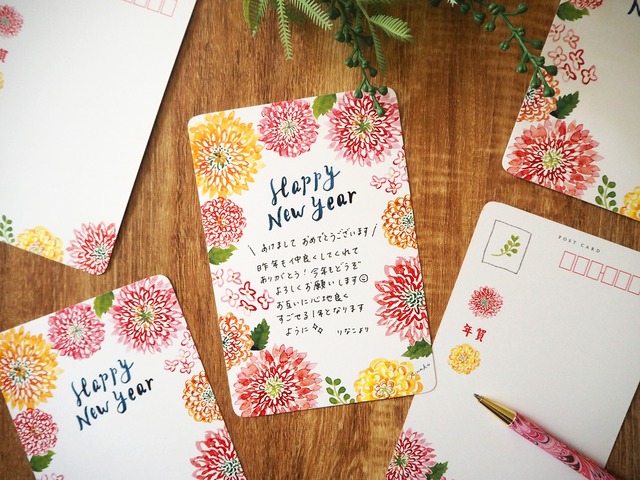 Happy
New Year
\ あけまして おめでとうございます /
昨年も仲良くしてくれて
ありがとう！今年もどうぞ
よろしくお願いします☺
お互いに心地良く
すごせる1年となります
ように りなこより
Happy
New Year
POST CARD
年賀
賀